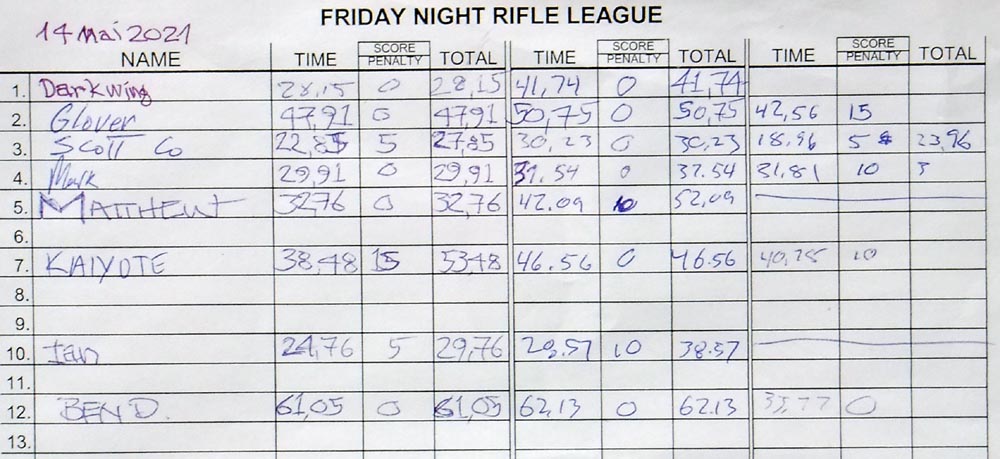 FRIDAY NIGHT RIFLE LEAGUE
14 Mai 2021
NAME TIME SCORE PENALTY TOTAL TIME SCORE PENALTY TOTAL TIME SCORE PENALTY TOTAL
1. Darkwing 28,15 0 28,15 41,74 0 41,74
2. Glover 47,91 0 47,91 50,75 0 50,75 42,56 15
3. Scott Co 22,85 5 27,85 30,23 0 30,23 18,96 5 23,96
4. Mark 29,91 0 29,91 37.54 0 37.54 31,81 10
5. MATTHEW 32,76 0 32,76 42.09 10 52,09
6.
7. KAIYOTE 38,48 15 53,48 46.56 0 46.56 10
8.
9.
10. Ian 24,76 5 29,76 28.57 10 38.57
11.
12. BEN D. 61,05 0 61,05 62.13 0 62.13 0
13.